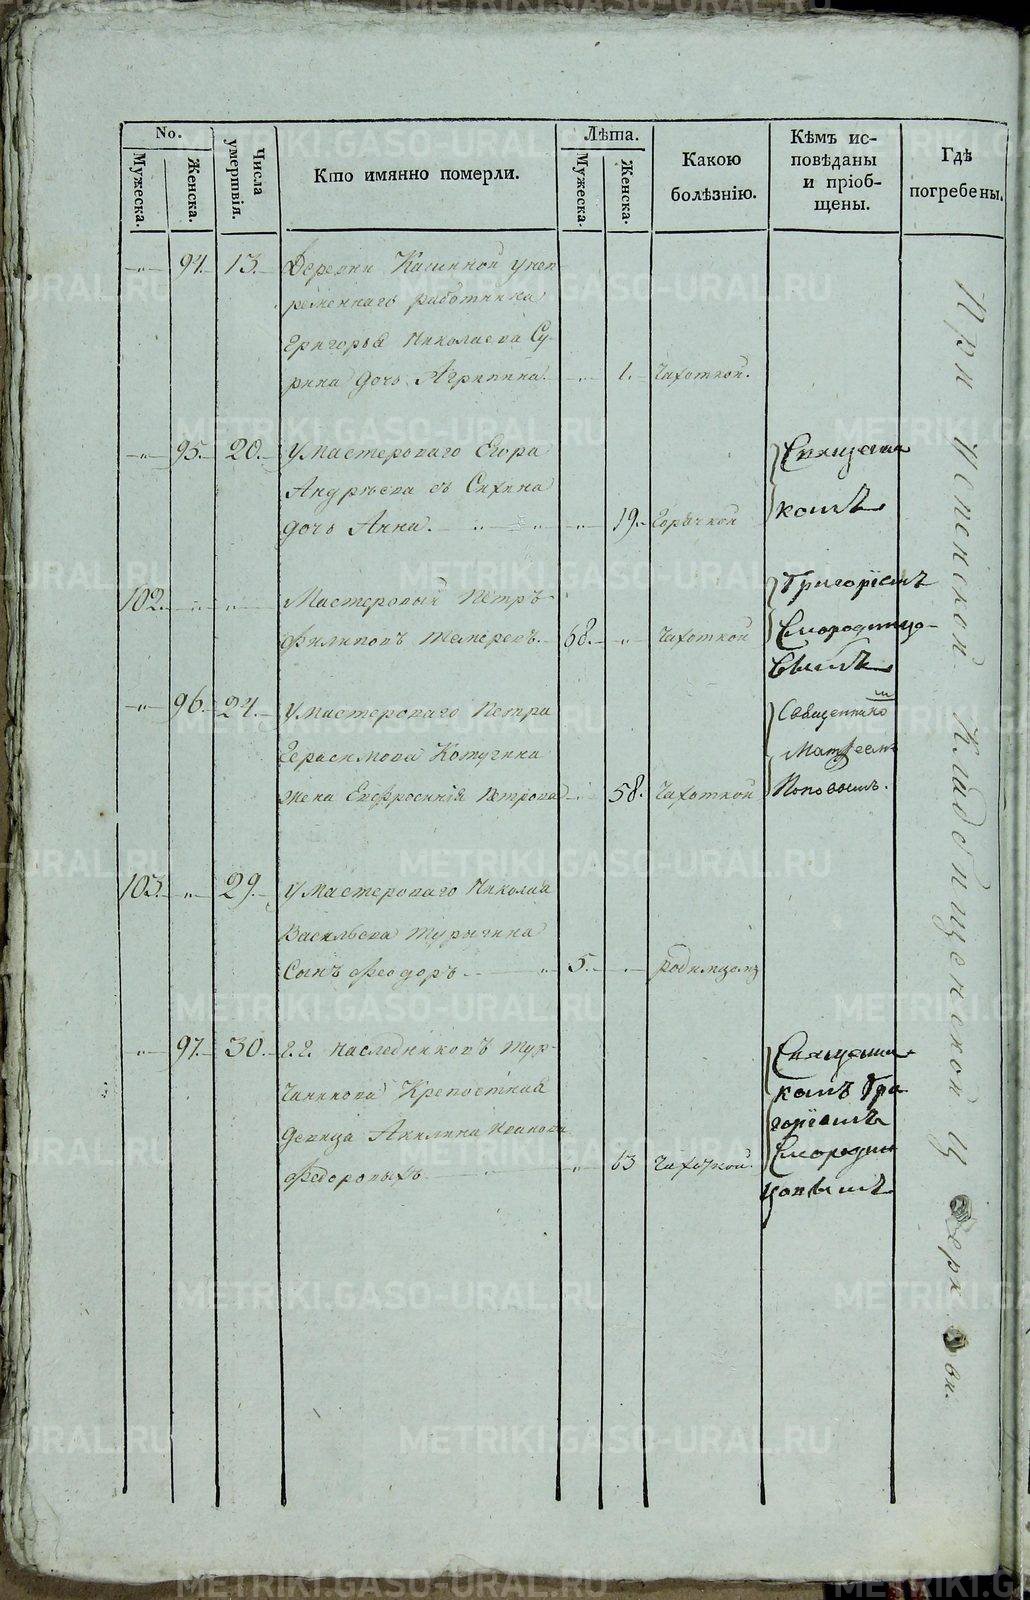 No.
Мужеска.
Женска.
Числа умертвія.
Кто имянно померли.
Лѣта.
Мужеска.
Женска.
Какою болѣзнію.
Кѣмъ исповѣданы и пріобщены.
Гдѣ погребены.
94. 13. Деревни Кашиной непременнаго работника
Григорья Николаева Сурина дочь Агрипина. 1. Чахоткой.
95. 20. У Мастероваго Егора
Андрѣева
дочь Анна. 19. Горячкой
Священникомъ
102. Мастеровый Петръ
Филиповъ 68. Чахоткой
Григоріемъ
Смородинцовымъ
96. 24. У Мастероваго Петра
Герасимова Котугина
жена Евфросинія Петрова 58. Чахоткой
Священникомъ
Матѳеемъ
Поповымъ.
103. 29. У Мастероваго Николая
Васильева Турыгина
Сынъ Феодоръ 5. родимцомъ
97. 30. Г.г. наследниковъ Турчанинова Крепостная
девица Акилина Иванова
Федоровыхъ 63 Чахоткой.
Священникомъ Григоріемъ
Смородинцовымъ
При Успенской Кладбищенской Церкви.
METRIKI.GASO-URAL.RU